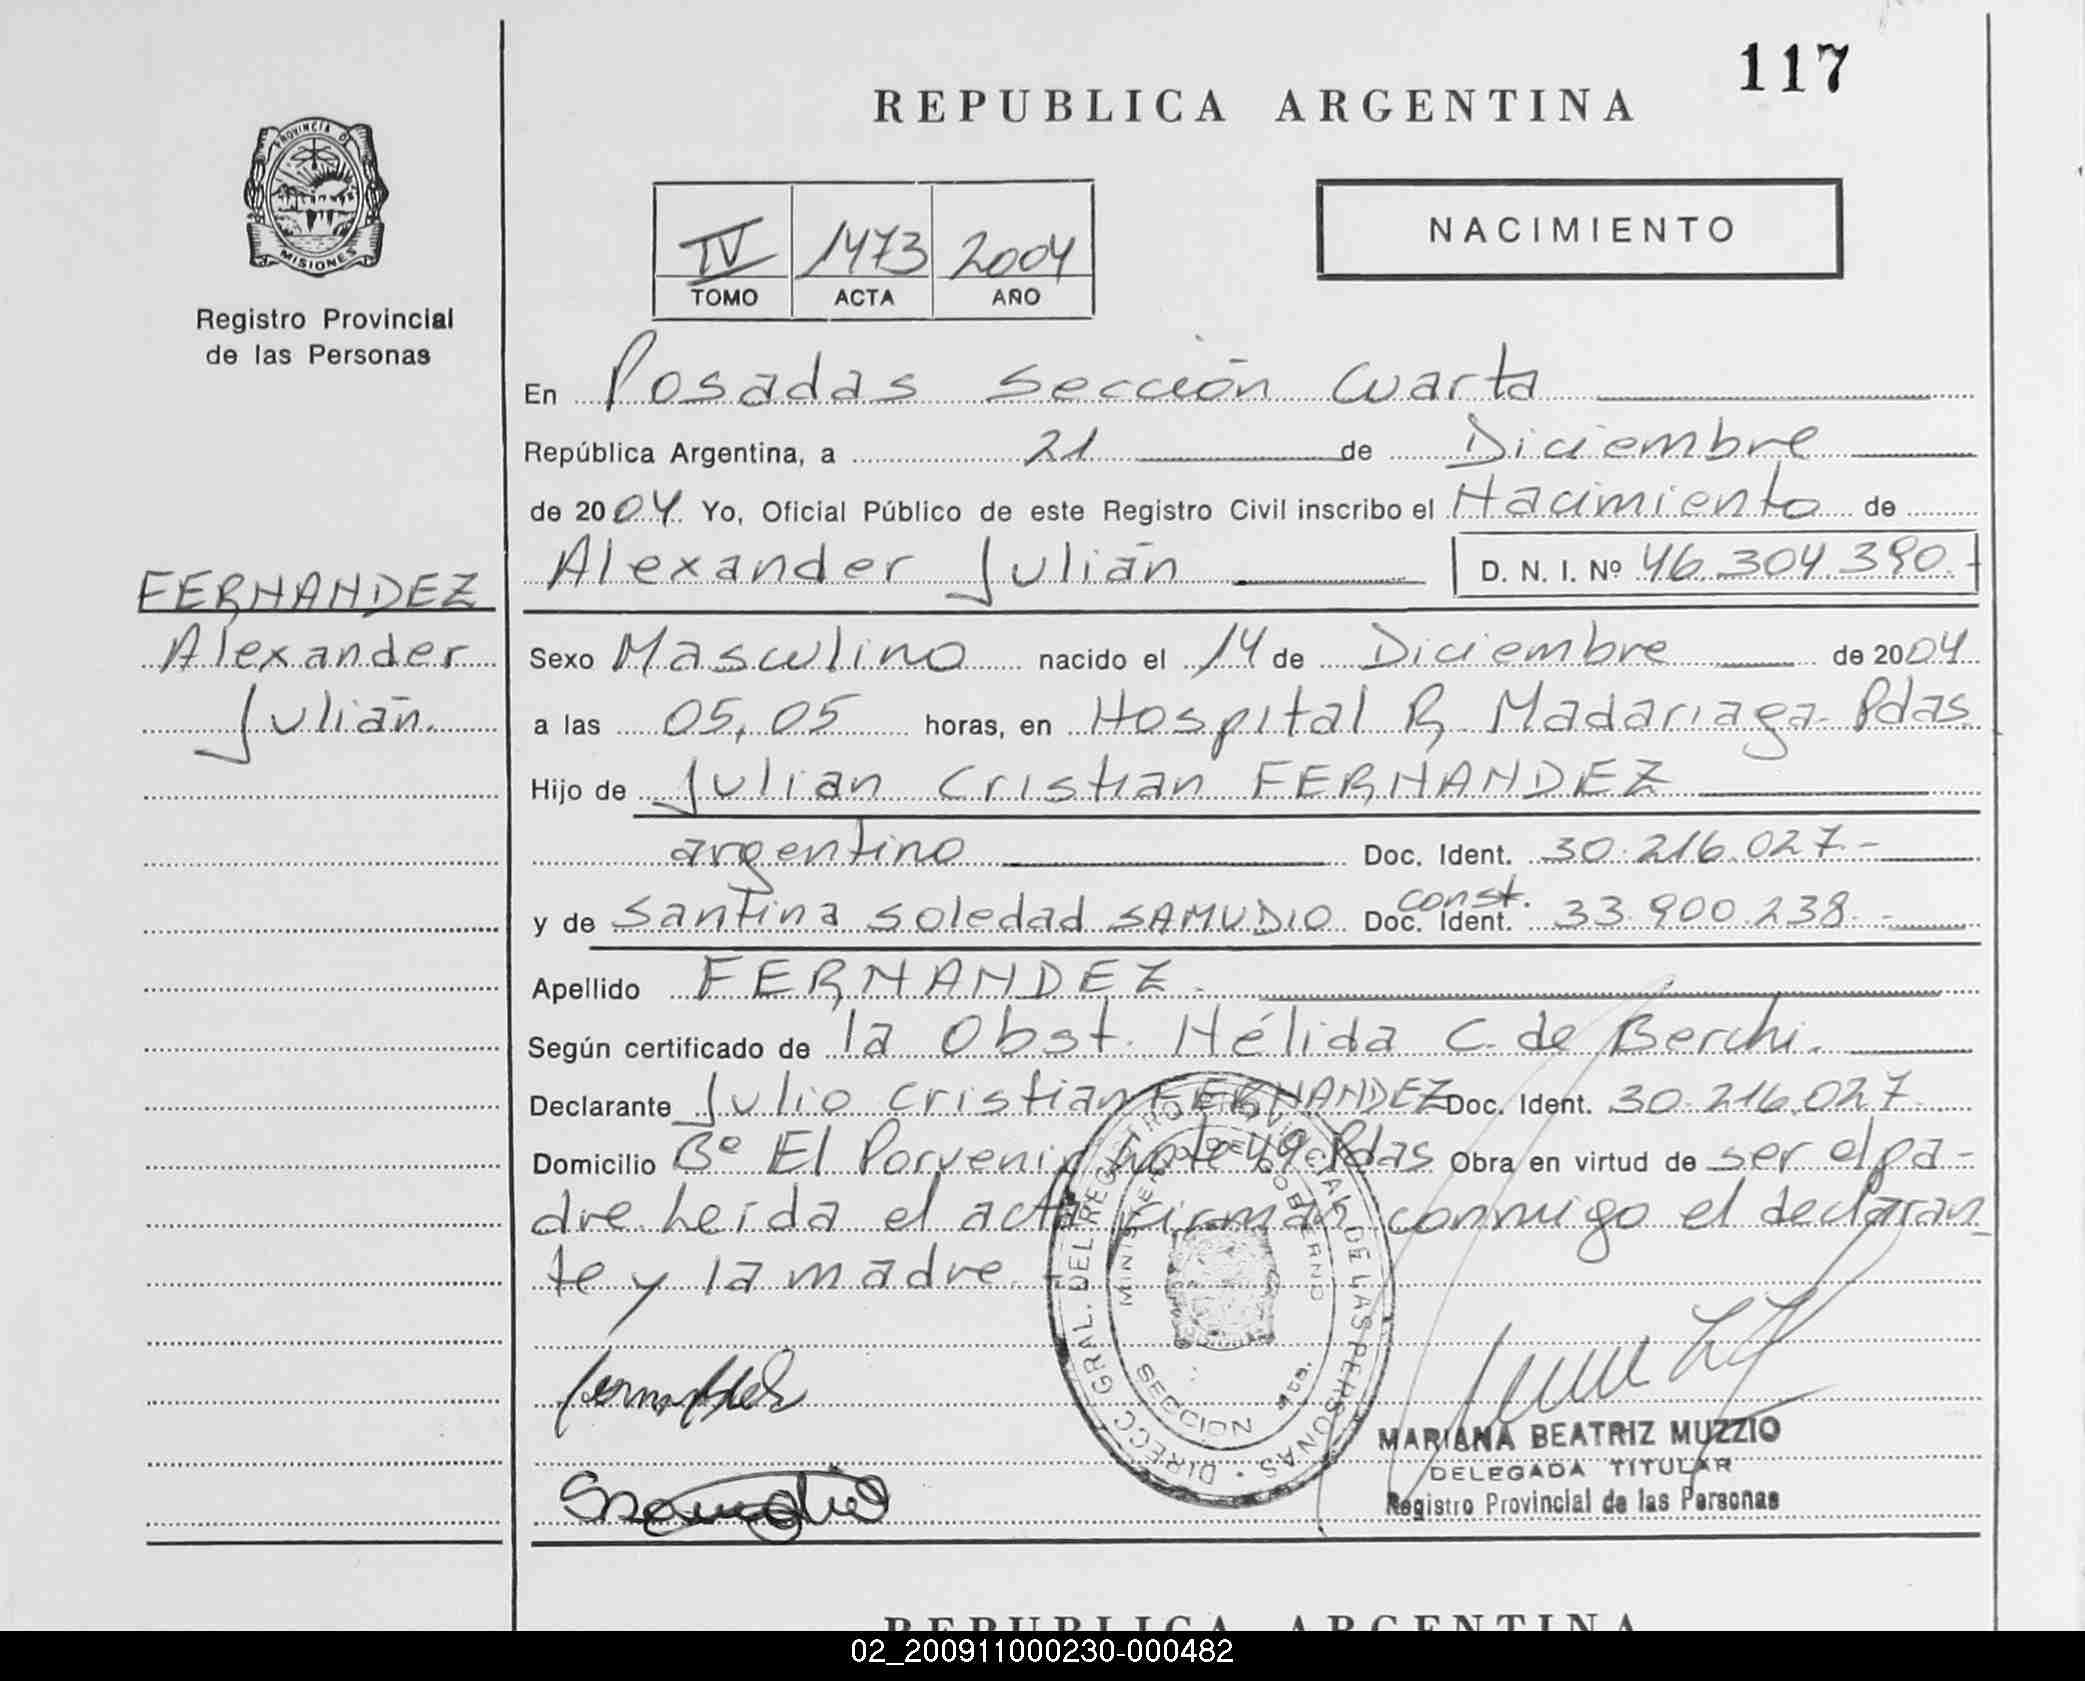 117
REPUBLICA ARGENTINA
PROVINCIA DE
MISIONES
Registro Provincial
de las Personas
IV 1473 2004
TOMO ACTA AÑO
NACIMIENTO
En Posadas sección Cuarta
República Argentina, a 21 de Diciembre
de 2004 Yo, Oficial Público de este Registro Civil inscribo el Nacimiento de
Alexander Julián D. N. I. Nº 46.304.390.-
FERNANDEZ
Alexander
Julián.
Sexo Masculino nacido el 14 de Diciembre de 2004
a las 05,05 horas, en Hospital R. Madariaga-Pdas
Hijo de Julian Cristian FERNANDEZ
argentino Doc. Ident. 30.216.027.-
y de Santina Soledad SAMUDIO const. Doc. Ident. 33.900.238.-
Apellido FERNANDEZ.
Según certificado de la Obst. Hélida C. de Berchi.
Declarante Julio Cristian FERNANDEZ Doc. Ident. 30.216.027.
Domicilio Bº El Porvenir lote 49 Pdas Obra en virtud de ser el pa-
dre. Leída el acta firman conmigo el declaran-
te y la madre.
DIRECC. GRAL. DEL REGISTRO PROVINCIAL DE LAS PERSONAS
MINISTERIO DE GOBIERNO
SECCION 4ta.
MARIANA BEATRIZ MUZZIO
DELEGADA TITULAR
Registro Provincial de las Personas
REPUBLICA ARGENTINA
02_200911000230-000482